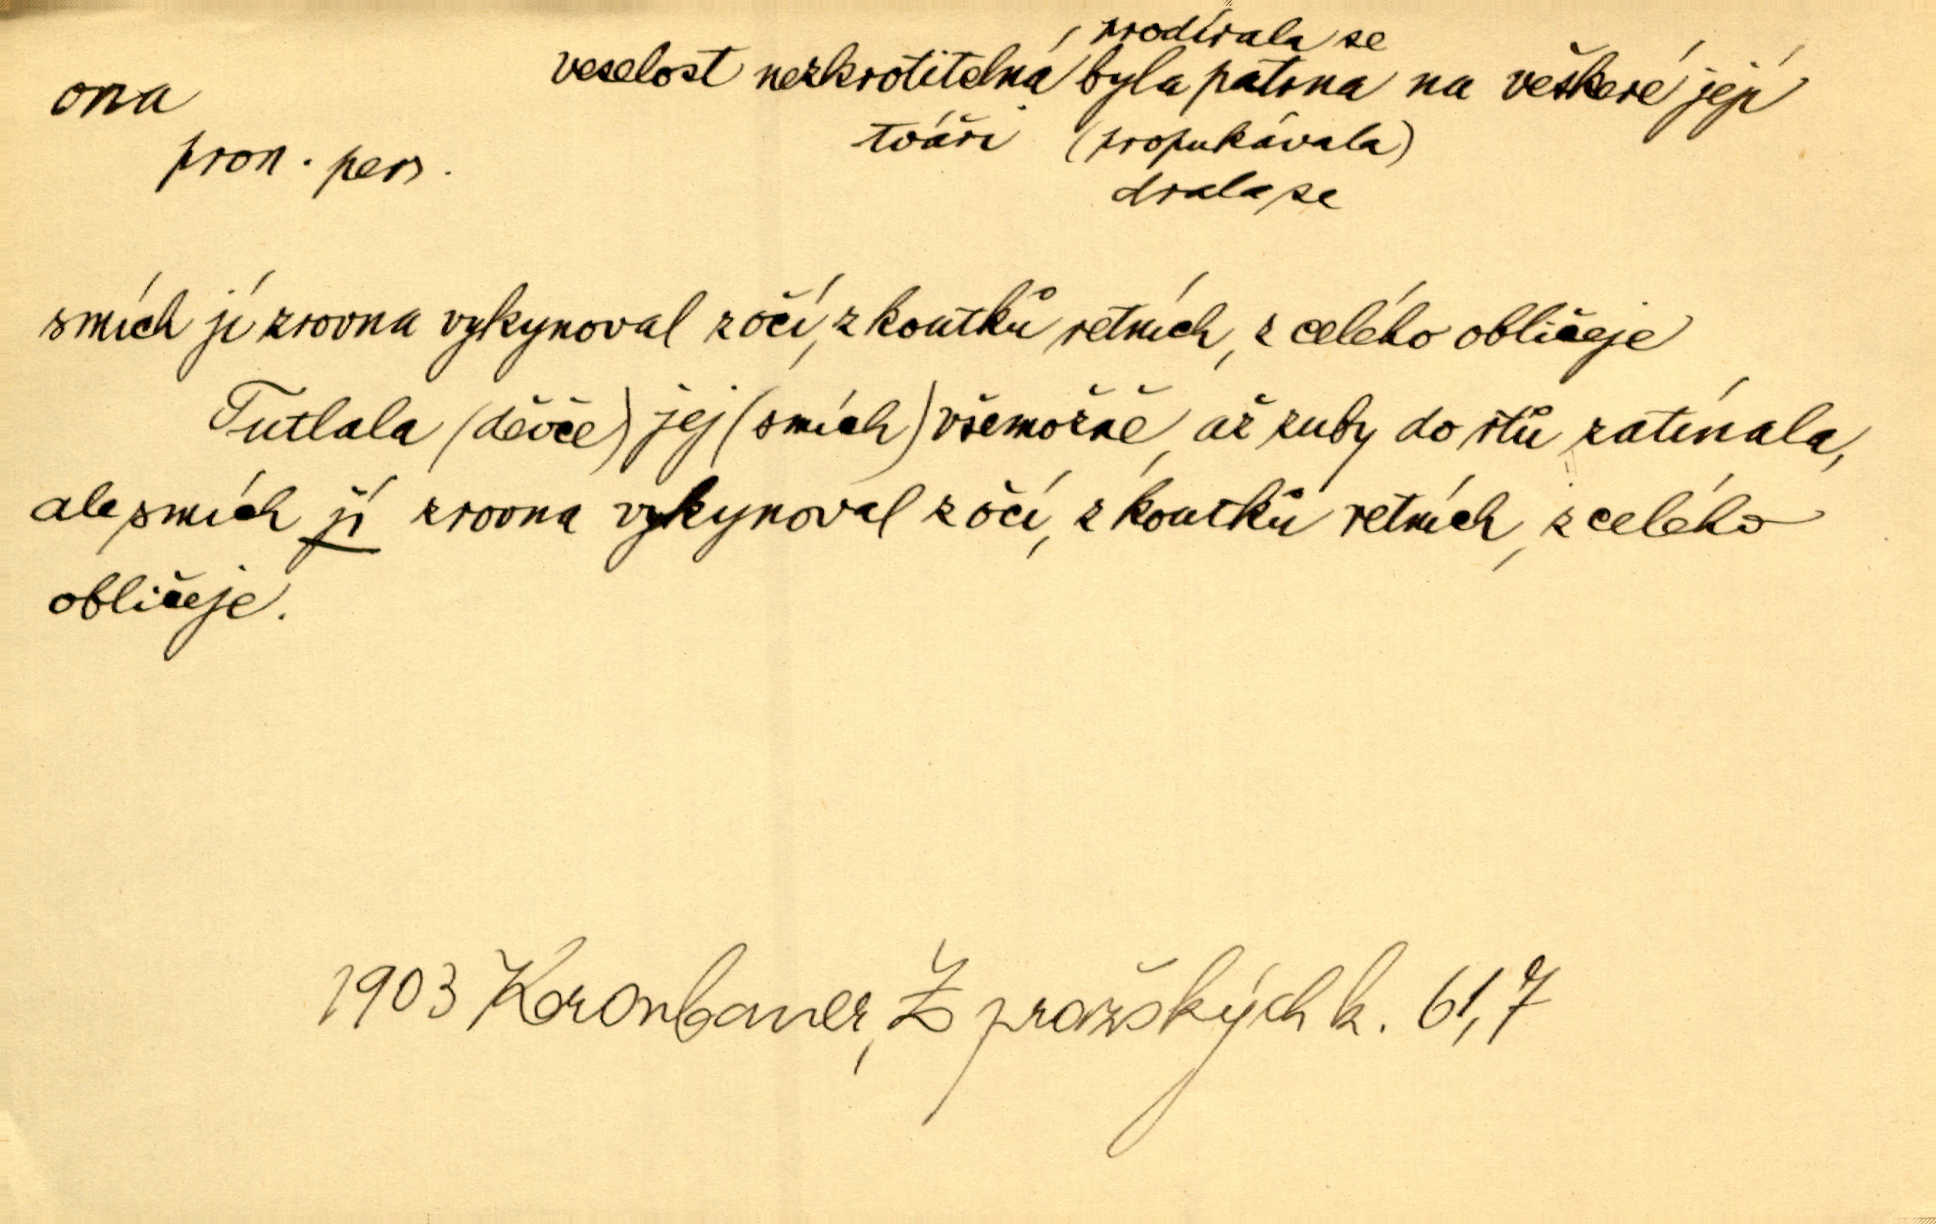 prodírala se
ona veselost nezkrotitelná byla patrna na veškeré její
pron. pers. tváři (propukávala)
drala se
smích jí zrovna vykynoval z očí, z koutků retních, z celého obličeje
Tutlala (děvče) jej (smích) všemožně, až zuby do rtů zatínala,
ale smích jí zrovna vykynoval z očí, z koutků retních, z celého
obličeje.
1903 Kronbauer, Z pražských k. 61,7